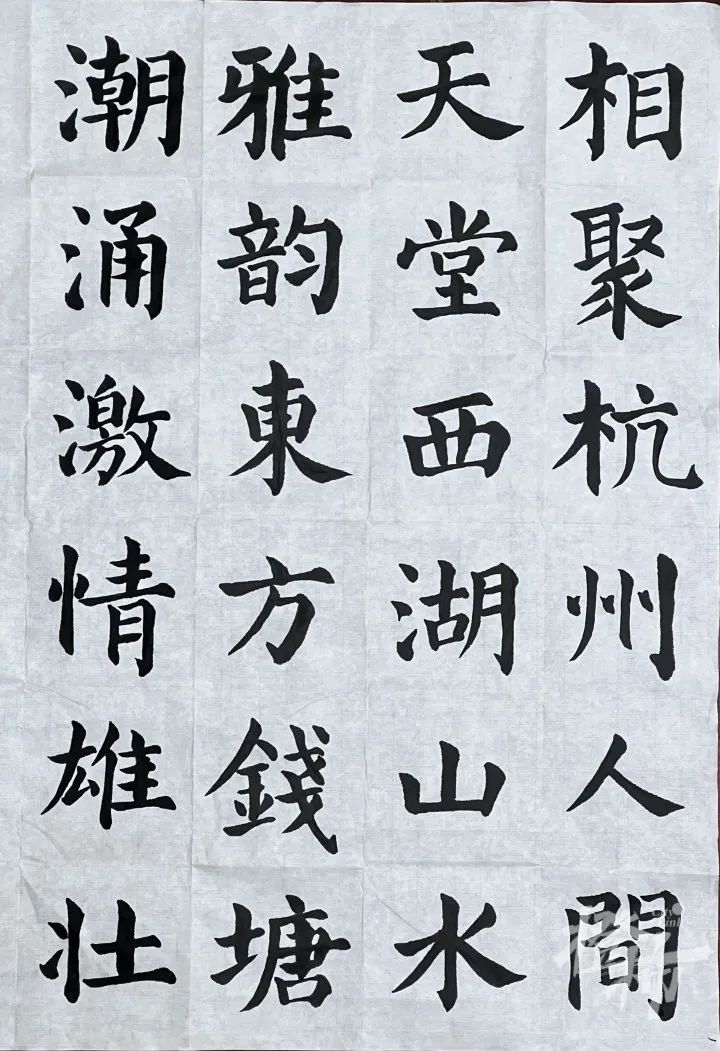 相聚杭州人間
天堂西湖山水
雅韵東方錢塘
潮涌激情雄壮